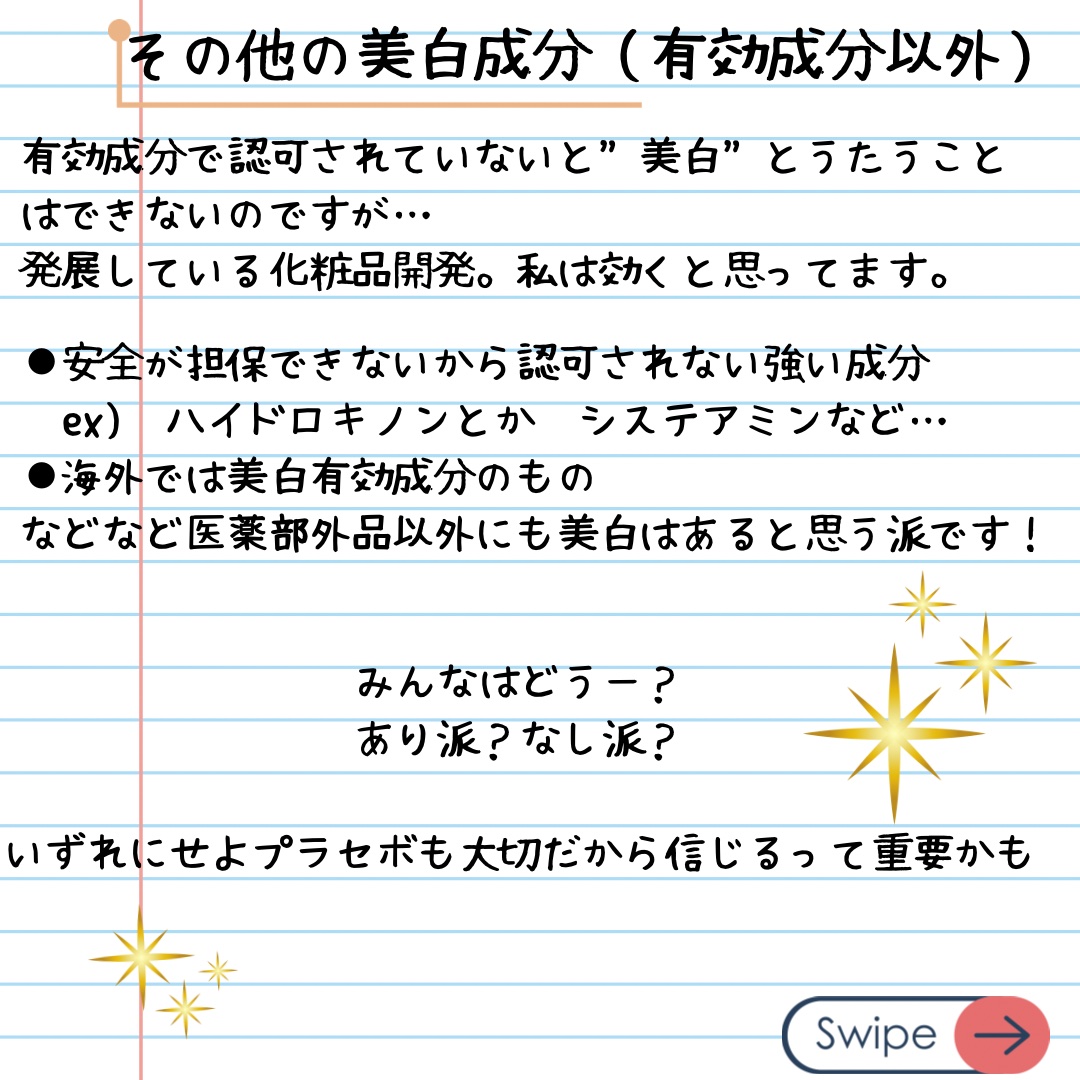 その他の美白成分（有効成分以外）
有効成分で認可されていないと”美白”とうたうこと
はできないのですが…
発展している化粧品開発。私は効くと思ってます。
●安全が担保できないから認可されない強い成分
ex) ハイドロキノンとか システアミンなど…
●海外では美白有効成分のもの
などなど医薬部外品以外にも美白はあると思う派です！
みんなはどうー？
あり派？なし派？
いずれにせよプラセボも大切だから信じるって重要かも
Swipe